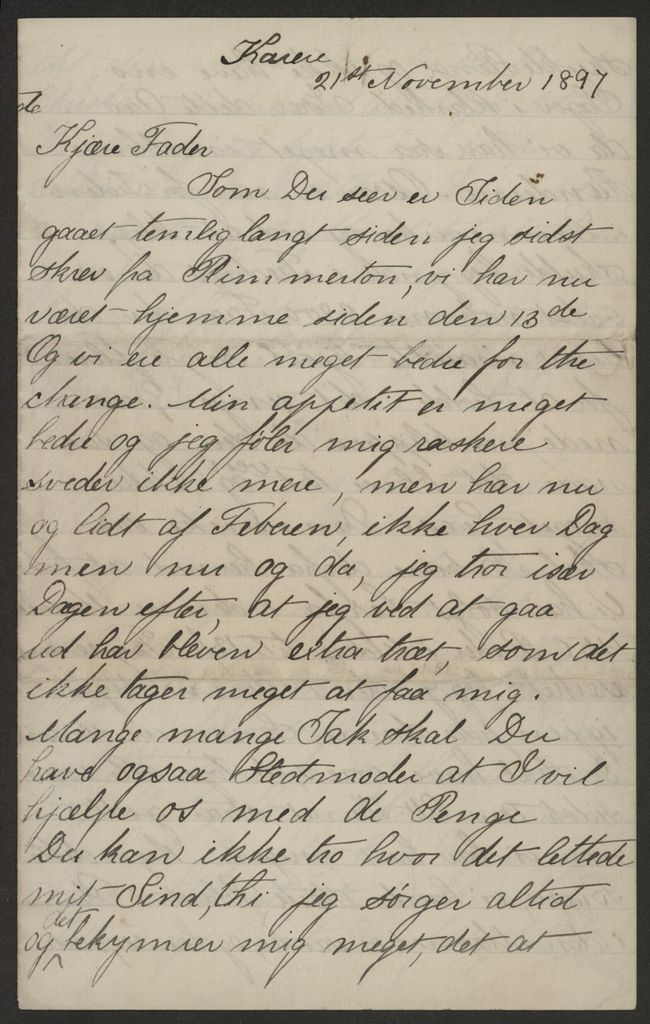 Karere
21st November 1897
de
Kjære Fader
Som Du seer er Tiden
gaaet temlig langt siden jeg sidst
skrev fra Plimmerton, vi har nu
været hjemme siden den 13de
Og vi ere alle meget bedre for the
change. Min appetit er meget
bedre og jeg föler mig raskere
sveder ikke mere, men har nu
og lidt af Feberen, ikke hver Dag
men nu og da, jeg tror især
Dagen efter, at jeg ved at gaa
ud har bleven extra træt, som det
ikke tager meget at faa mig.
Mange mange Tak skal Du
have ogsaa Stedmoder at I vil
hjælpe os med de Penge
Du kan ikke tro hvor det lettede
mit Sind, thi jeg sörger altid
og det bekymrer mig meget, det at